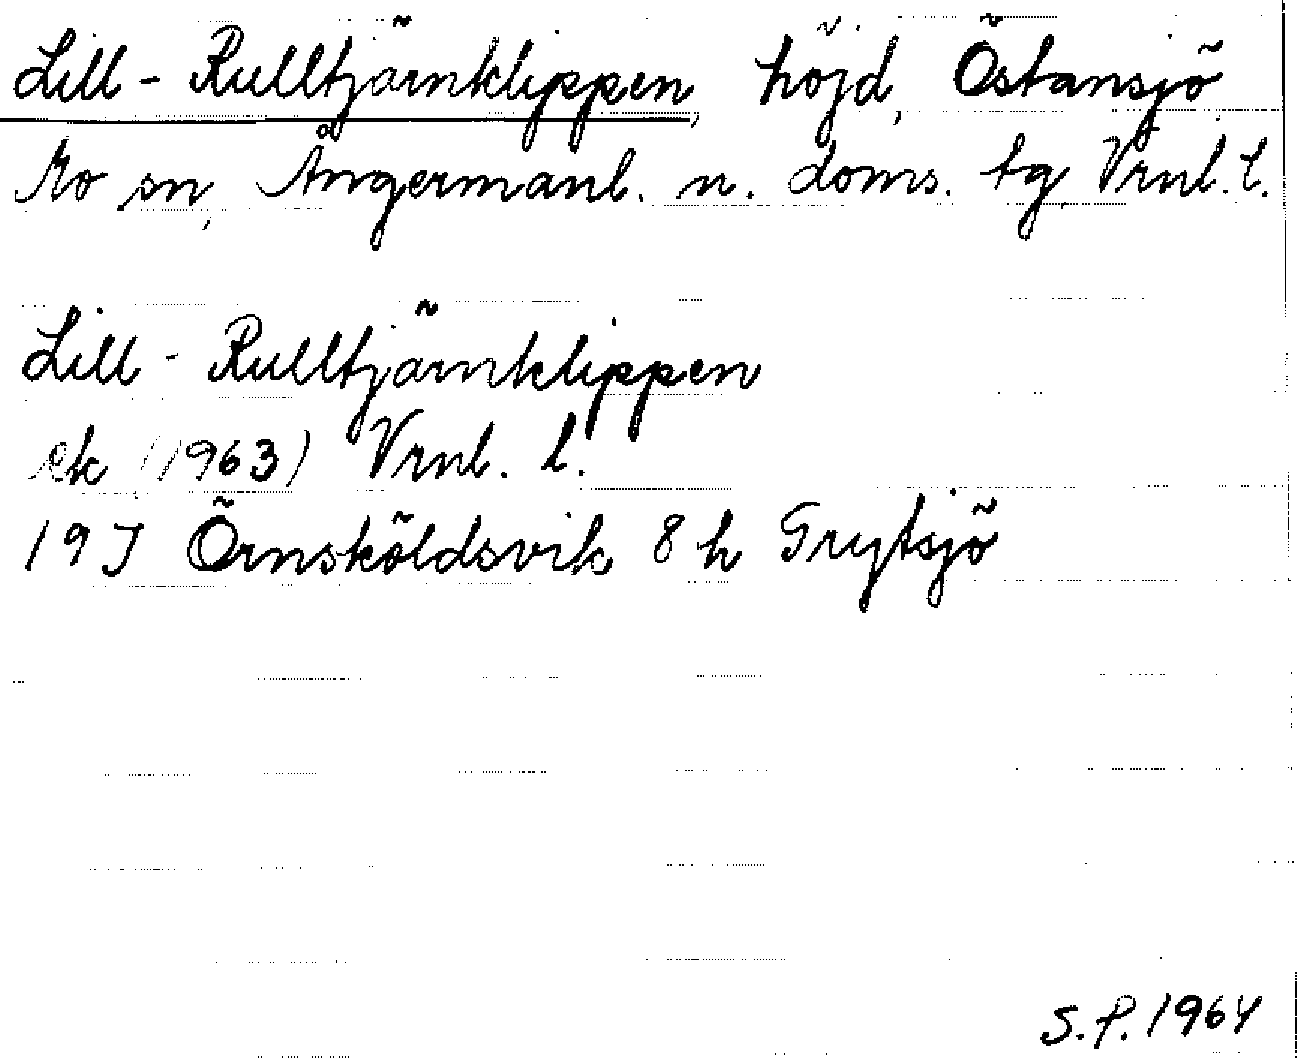 Lill-Rulltjärnklippen, höjd, Östansjö
Mo sn, Ångermanl. n. doms. tg, Vrnl. l.
Lill-Rulltjärnklippen
ek (1963) Vrnl. l.
19J Örnsköldsvik 8h Grytsjö
S.P. 1964